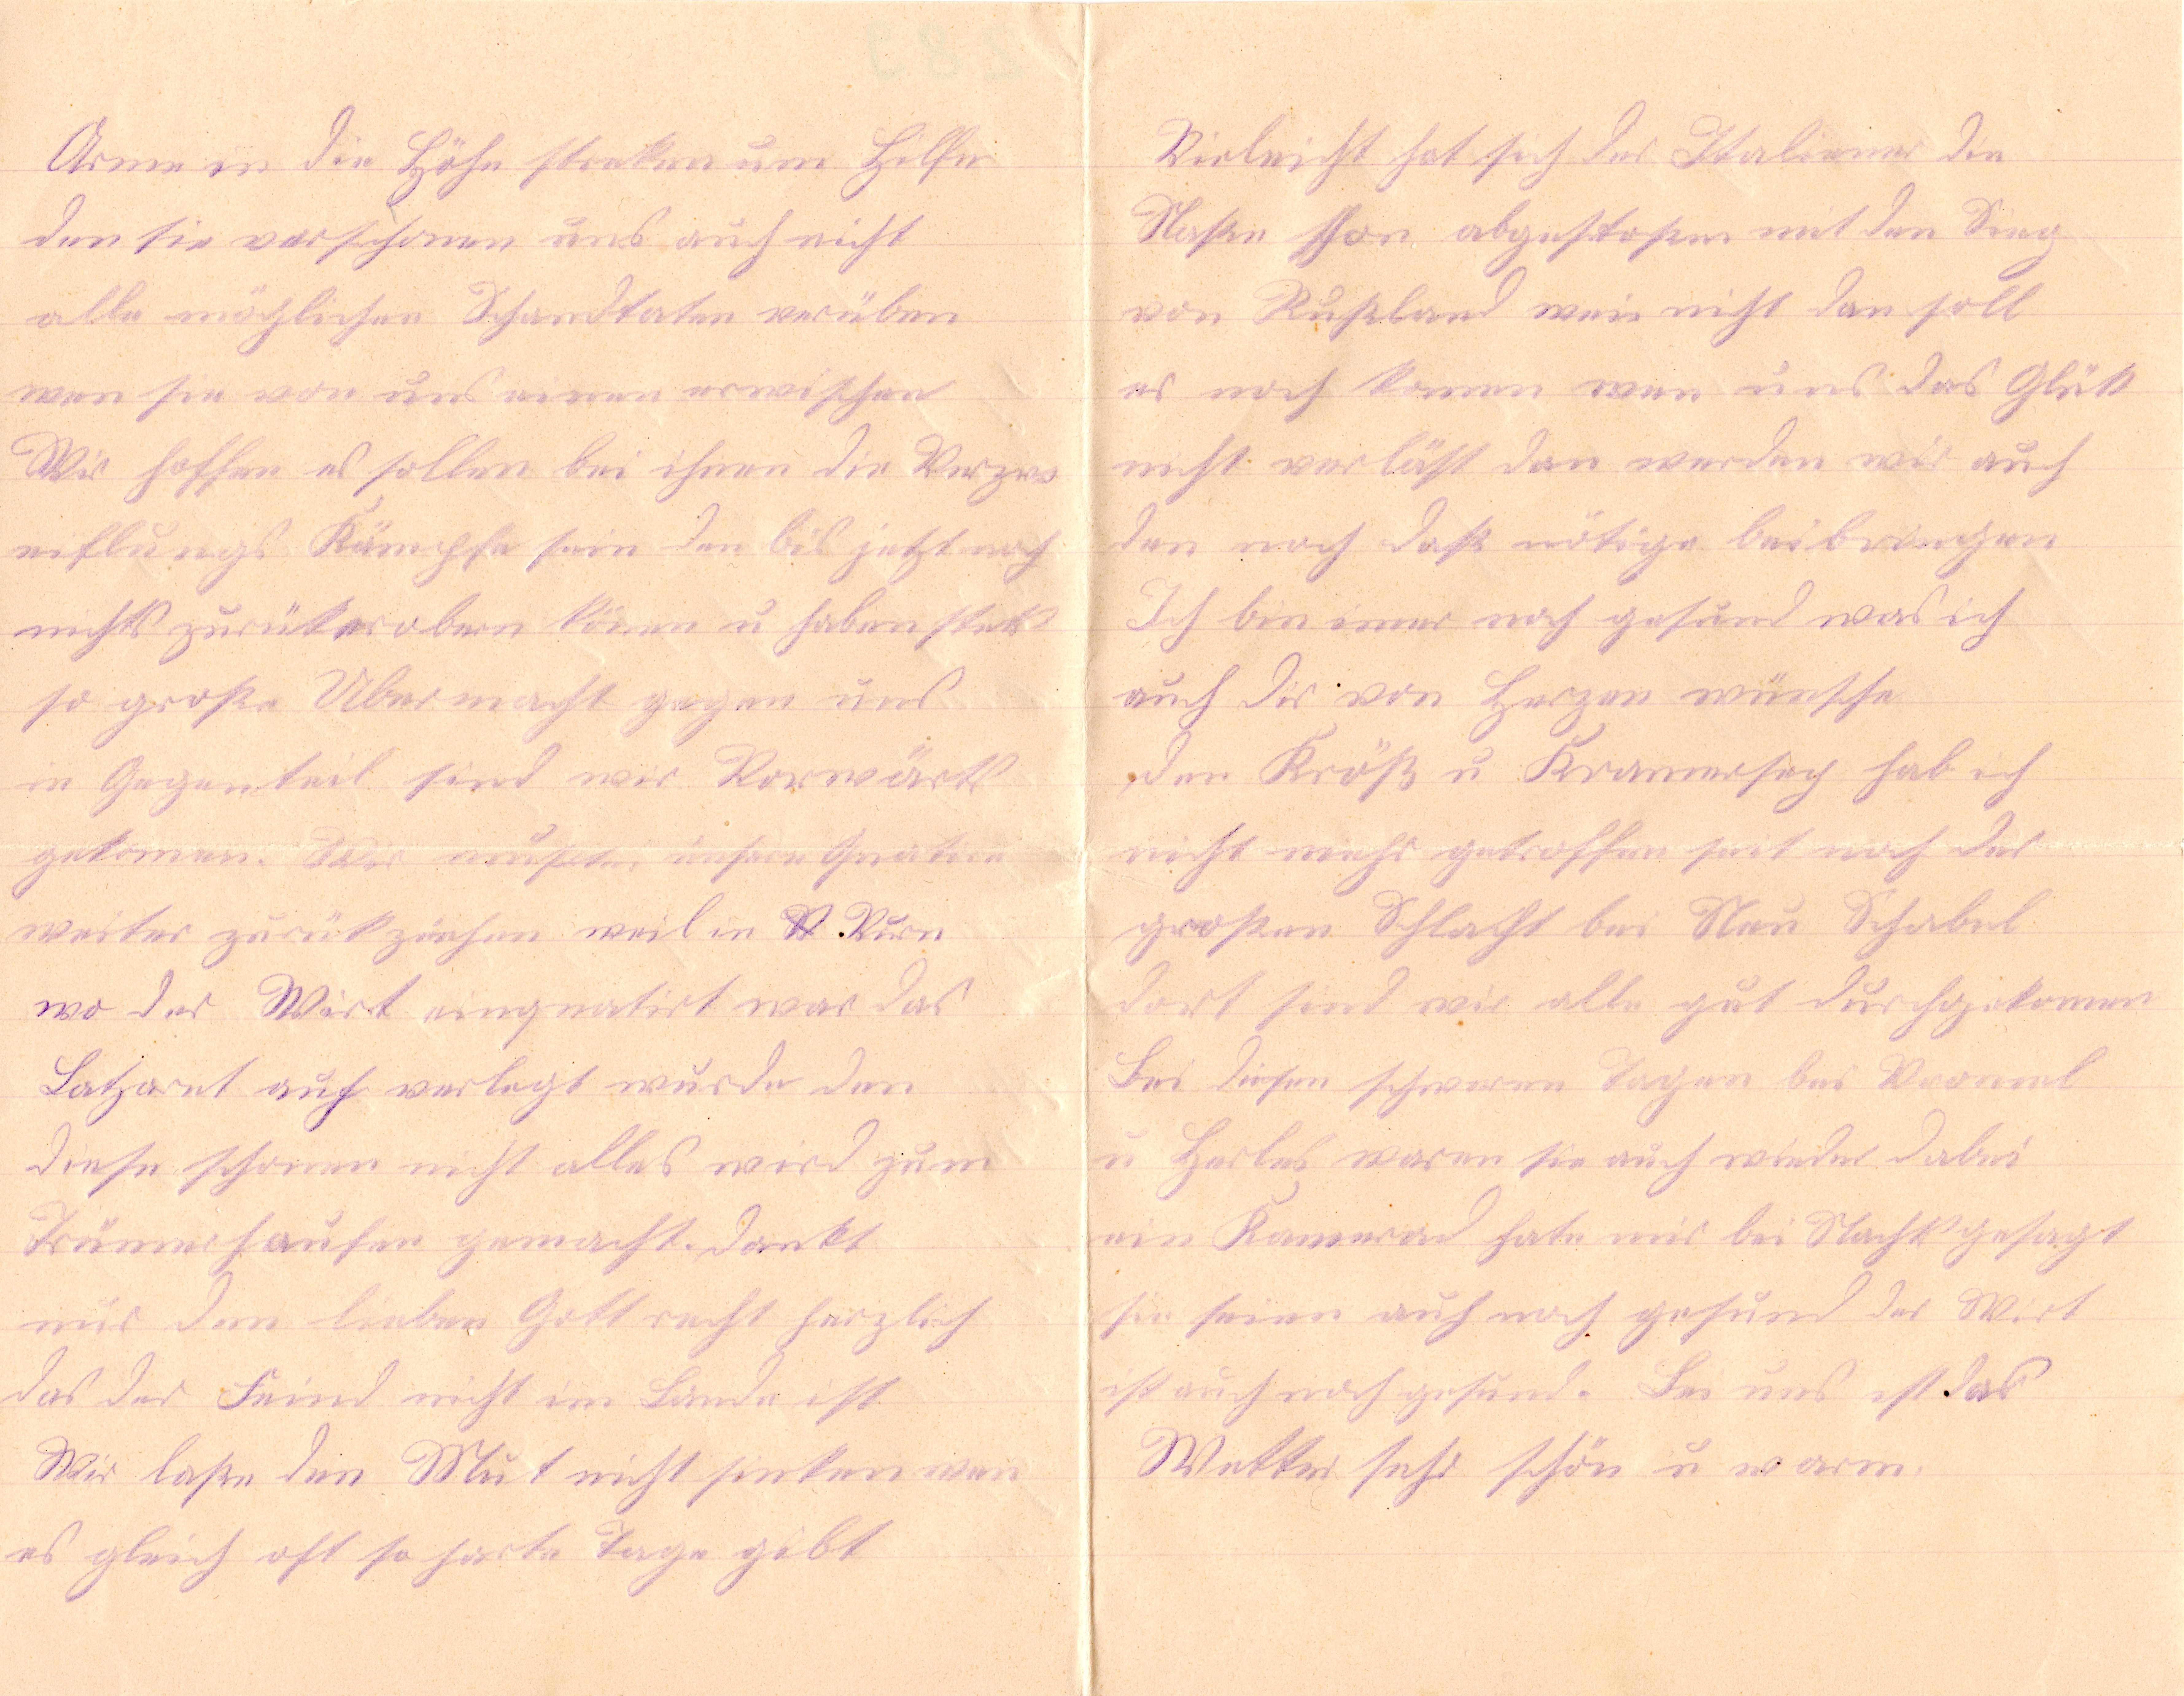 Arme in die Höhe streken um Hilfe
den sie verschonen uns auch nicht
alle möglichen Schandtaten verüben
wen sie von uns einen erwischen
Wir hoffen es sollen bei ihnen die Verzw
eiflungs Kämpfe sein den bis jetzt noch
nichts zurükerobern könen u haben stets
so große Ubermacht gegen uns
in Gegenteil sind wir Vorwärts
gekomen. Wir mußten unsere Quatire
weiter zurükziehen weil in
wo der Wirt einquatirt war das
Latzaret auch verlegt wurde den
diese schonen nicht alles wird zum
Trümerhaufen gemacht. Dankt
nur dem lieben Gott recht herzlich
das der Feind nicht im Lande ist
Wir laße den Mut nicht sinken wen
es gleich oft so harte Tage gibt
Vieleicht hat sich der Italiener die
Naße schon abgestoßen mit den Sieg
von Rußland wen nicht dan soll
es noch komen wen uns das Glük
nicht verläßt dan werden wir auch
den noch daß nötige beibringen
Ich bin imer noch gesund was ich
auch dir von Herzen wünsche
den Kröß u Kramersep hab ich
nicht mehr getroffen seit nach der
großen Schlacht bei Neu Schabel
dort sind wir alle gut durchgekomen
Bei diesen schweren Tagen bei
u waren sie auch wieder dabei
ein Kamerad hate mir bei Nacht gesagt
sie seien auch noch gesund der Wirt
ist auch noch gesund. Bei uns ist das
Wetter sehr schön u warm.